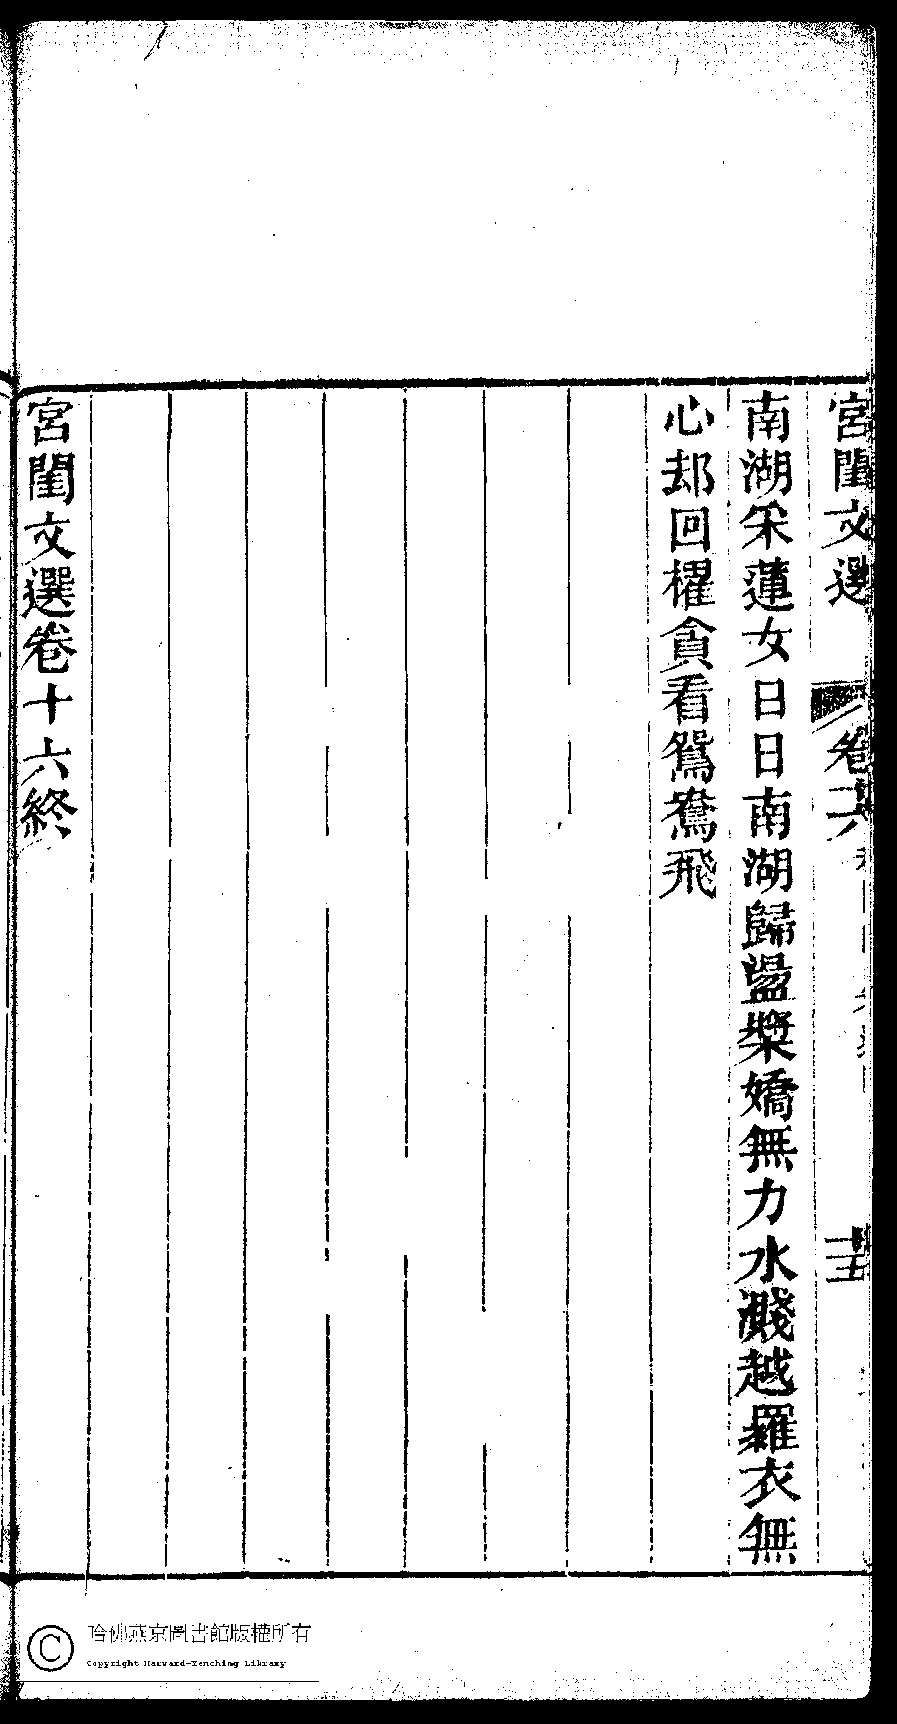 宮閨文選
卷十六
十五
南湖采蓮女日日南湖歸盪槳嬌無力水濺越羅衣無
心却回櫂貪看鴛鴦飛
宮閨文選卷十六終
哈佛燕京圖書館版權所有
Copyright Harvard-Yenching Library